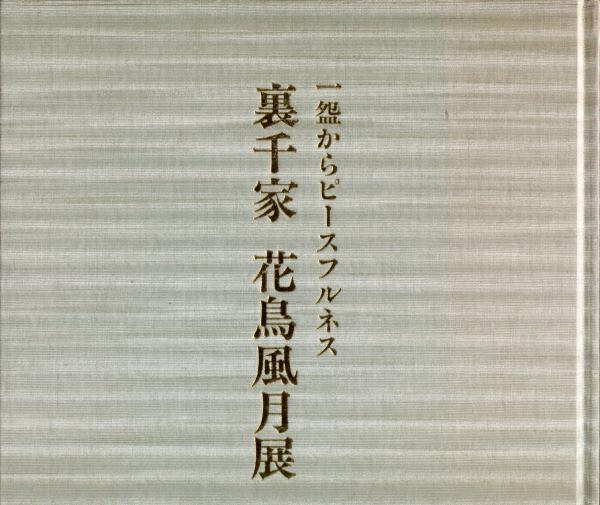 一盌からピースフルネス
裏千家 花鳥風月展